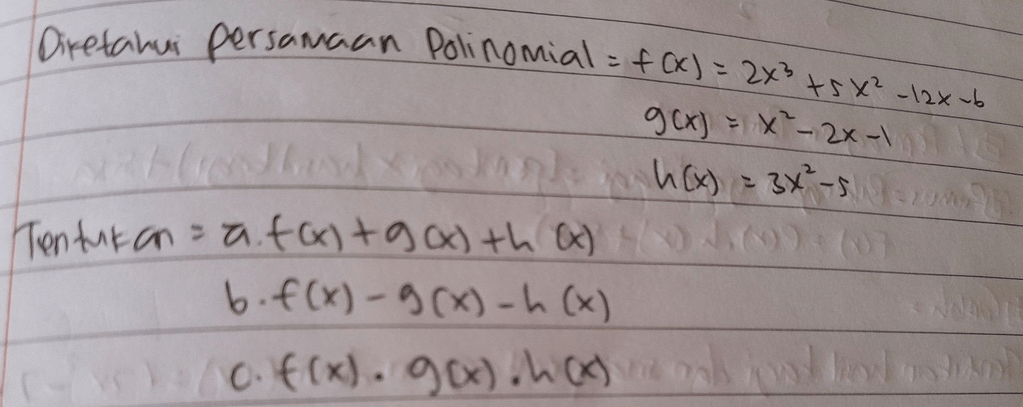 Diketahui Persamaan Polinomial = f(x) = 2x³ + 5x² - 12x - 6
g(x) = x² - 2x - 1
h(x) = 3x² - 5
Tentukan = a. f(x) + g(x) + h(x)
b. f(x) - g(x) - h(x)
c. f(x) . g(x) . h(x)